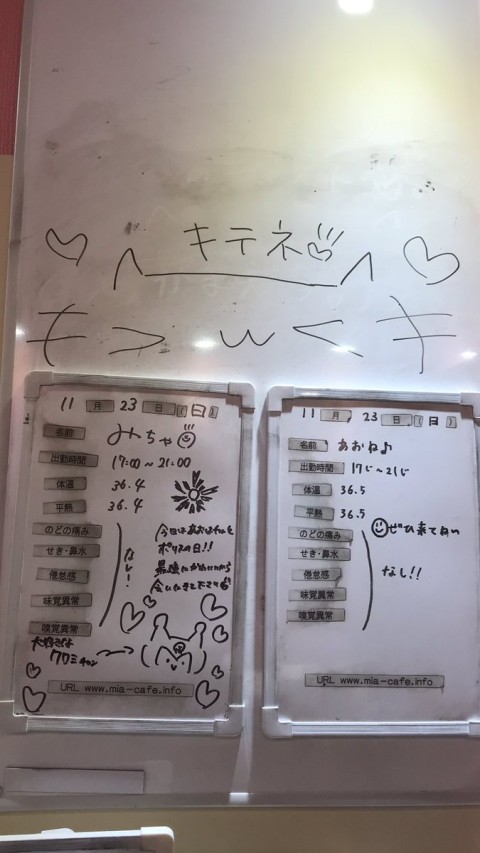 キテネ
11 月 23 日 (日)
名前 みちゃ
出勤時間 17:00～21:00
体温 36.4
平熱 36.4
のどの痛み
せき・鼻水
倦怠感
味覚異常
嗅覚異常
なし!
今日はあおねちゃんと
ポリスの日!!
最強にかわいいから
会いにきて下さい
大好きだよ
クロミチャン
URL www.mia-cafe.info
11 月 23 日 (日)
名前 あおね♪
出勤時間 17じ～21じ
体温 36.5
平熱 36.5
ぜひ来てねい
のどの痛み
せき・鼻水
倦怠感
味覚異常
嗅覚異常
なし!!
URL www.mia-cafe.info